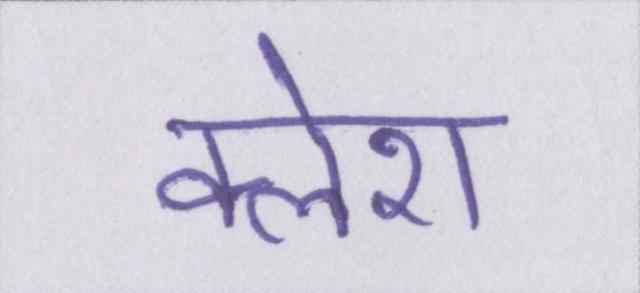 क्लेश